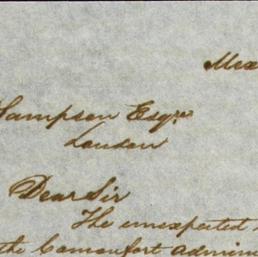 Mex
Sampson Esqre
London
Dear Sir
The unexpected
the Comonfort admin